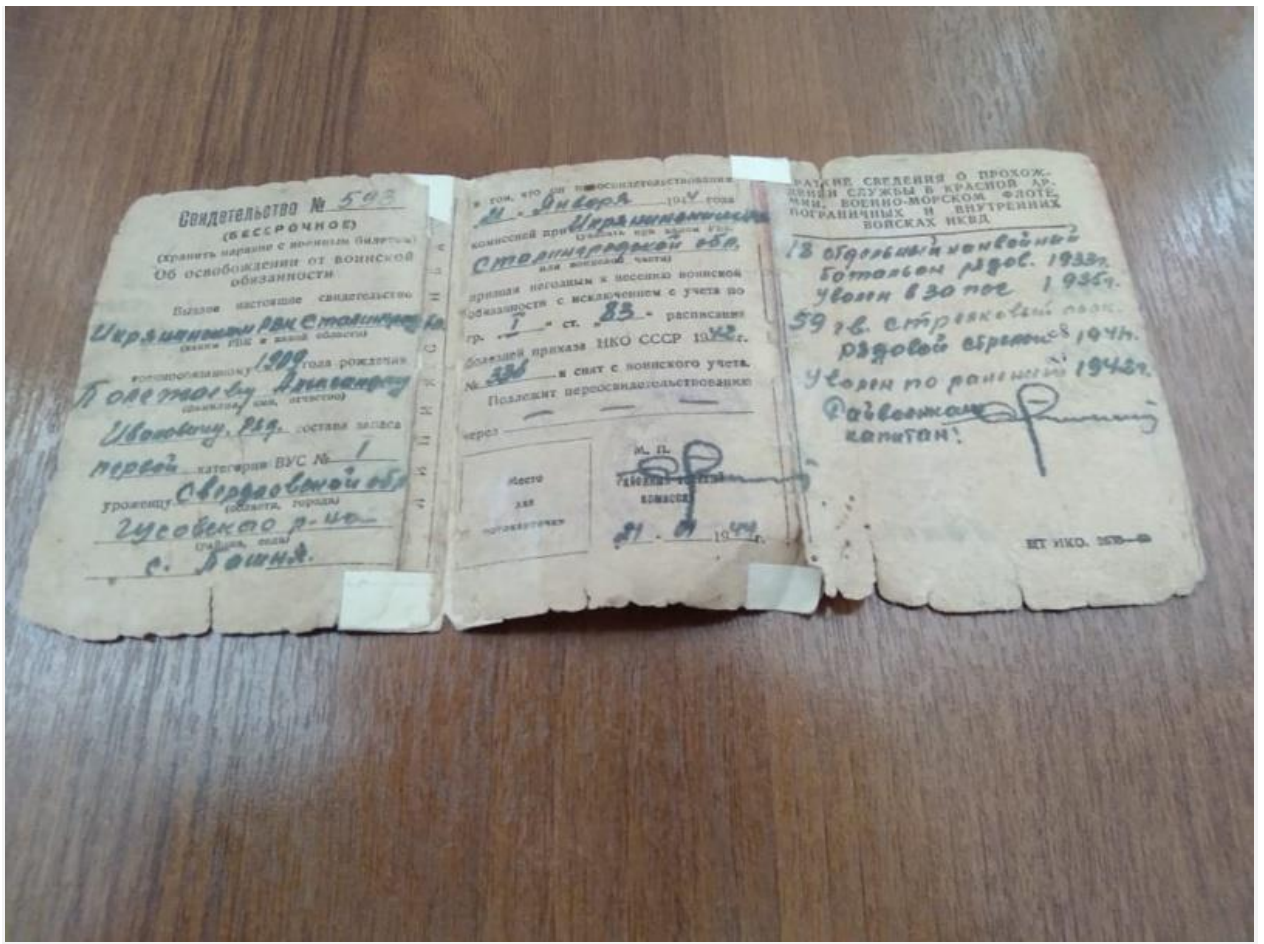 Свидетельство № 593
(БЕССРОЧНОЕ)
(Хранить наравне с военным билетом)
Об освобождении от воинской
обязанности
Выдано настоящее свидетельство
Икрянинским РВК Сталинград
(каким РВК и какой области)
военнообязанному 1909 года рождения
Полетаеву Александру
(фамилия, имя, отчество)
Ивановичу. Ряд. состава запаса
первой категории ВУС № 1
уроженцу Свердловской обл
(области, города)
р-на
(района, села)
с. Пашня.
в том, что он переосвидетельствован
21 " Января 1944 года
комиссией при Икрянинском
(указать при каком РВК
Сталинградской обл.
или воинской части)
признан негодным к несению воинской
обязанности с исключением с учета по
гр. " I " ст. " 83 " расписания
болезней приказа НКО СССР 1942 г.
№ 336 и снят с воинского учета.
Подлежит переосвидетельствованию
через
М. П.
Место
для
комиссар
21 - 01 1944 г.
КРАТКИЕ СВЕДЕНИЯ О ПРОХОЖ-
ДЕНИИ СЛУЖБЫ В КРАСНОЙ АР-
МИИ, ВОЕННО-МОРСКОМ ФЛОТЕ,
ПОГРАНИЧНЫХ И ВНУТРЕННИХ
ВОЙСКАХ НКВД
18 отдельный конвойный
батальон рядов. 1933г.
Уволен в запас 1935г.
59 гв. стрелковый полк.
рядовой стрелок 1941г.
Уволен по ранению 1942г.
Райвоенком
капитан: